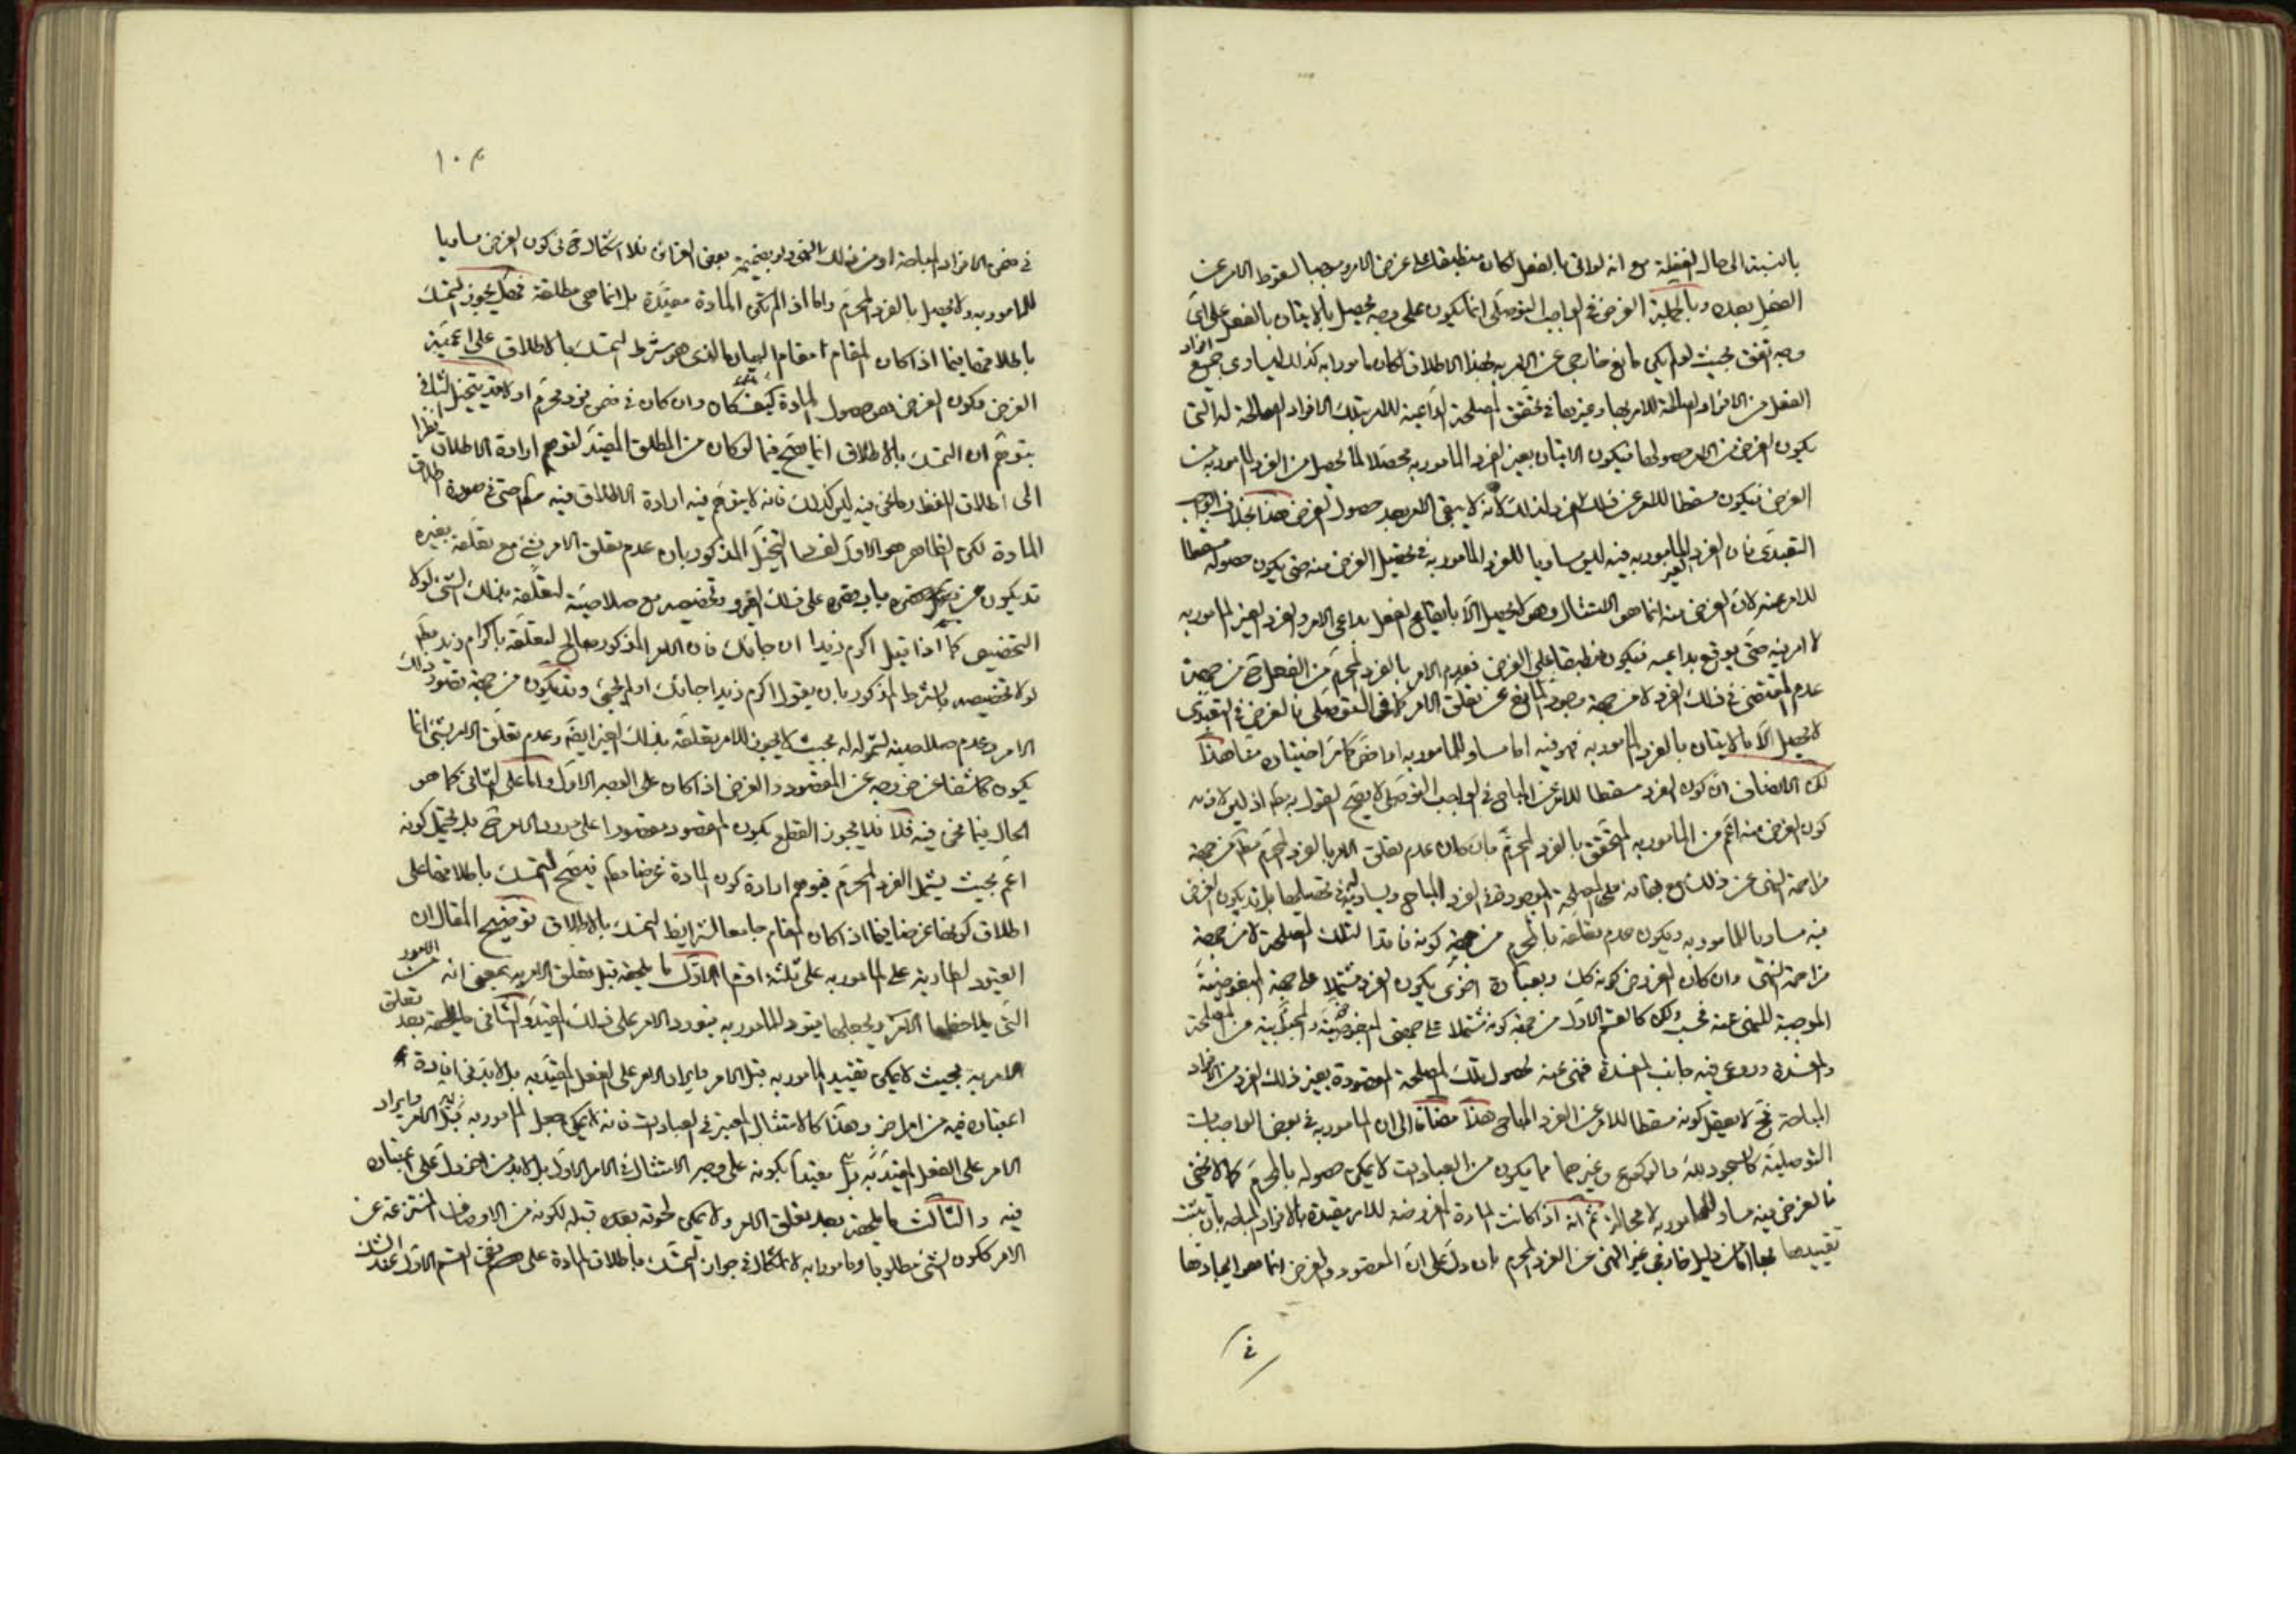 بالنسبة الى حال الغفلة مع انه لو اتى بالفعل لكان منطبقا على غرض الامر وموجبا لسقوط الامر عن
الفعل بعده وبالجملة الغرض في الواجب التوصلى انما يكون على وجه يحصل بالاتيان بالفعل على اى
وجه اتفق بحيث لو لم يكن مانع خارجى عن الامر به بهذا الاطلاق لكان مامورا به كذلك لتساوى جميع افراد
الفعل من الافراد الصالحة للامر بها وغيرها في تحقق المصلحة الداعية للامر بتلك الافراد الصالحة له التى
يكون الغرض من الامر حصولها فيكون الاتيان بغير الفرد المامور به محصلا لما يحصل من الفرد المامور به من
الغرض فيكون مسقطا للامر عن ذلك الفرد لذلك لانه لا يبقى الامر بعد حصول الغرض هذا بخلاف الواجب
التعبدى فان الفرد الغير المامور به فيه ليس مساويا للفرد المامور به في تحصيل الغرض منه حتى يكون حصوله مسقطا
للامر عنه لان الغرض منه انما هو الامتثال وهو لا يحصل الا بايقاع الفعل بداعى الامر والفرد الغير المامور به
لا امر فيه حتى يوقع بداعيه فيكون منطبقا على الغرض فعدم الامر بالفرد المحرم من جهة
عدم المقتضى في ذلك الفرد لا من جهة وجود المانع عن تعلق الامر كما فى التوصلى فالغرض في التعبدى
لا يحصل الا بالاتيان بالفرد المامور به فهو فيه اما مساو للمامور به او اخص كما مر اختيان هذا
لكن الانصاف ان كون الفرد مسقطا للامر عن المباح في الواجب التوصلى لا يصح القول به مط اذ ليس لازمه
كون الغرض منه اعم من المامور به المتحقق بالفرد المحرم بان كان عدم تعلق الامر بالفرد المحرم مط من جهة
مزاحمة النهى عن ذلك مع بقائه على المصلحة الموجودة في الفرد المباح ويساويه في تحصيلها بل قد يكون الغرض
فيه مساويا للمامور به ويكون عدم تعلقه بالمحرم من جهة كونه فاقدا لتلك المصلحة لا من جهة
مزاحمة النهى وان كان المفروض كونه كك وبعبارة اخرى يكون الفرد مشتملا على جهة المبغوضية
الموجبة للنهى عنه فحسب ولكن كالقسم الاول من جهة كونه مشتملا على جهتى المبغوضية والمحبوبية من المصلحة
والمفسدة وروعى فيه جانب المفسدة فنهى عنه لحصول تلك المصلحة المقصودة بغير ذلك الفرد من الافراد
المباحة فح لا يعقل كونه مسقطا للامر عن الفرد المباح هذا مضافا الى ان المامور به في بعض الواجبات
التوصلية كالسجود لله والركوع وغيرهما مما يكون من العبادات لا يمكن حصوله بالمحرم كما لا يخفى
فالغرض فيه مساو للمامور به لا محالة ثم انه اذا كانت المادة المفروضة للامر مقيدة بالافراد المباحة بان يثبت
تقييدها بها من دليل خارجى غير النهى عن الفرد المحرم بان دل على ان المقصود والغرض انما هو ايجادها
في
١٠٣
في ضمن الافراد المباحة او من ذلك النهى ولو بضميمة بعض القرائن فلا اشكال في كون الغرض مساويا
للمامور به ولا يحصل بالفرد المحرم واما اذا لم تكن المادة مقيدة بل انما هى مطلقة فهل يجوز التمسك
باطلاقها فيما اذا كان المقام مقام البيان الذى هو شرط التمسك بالاطلاق على اعمية
الغرض وكون الغرض هو حصول المادة كيف كان وان كان في ضمن فرد محرم او لا قد يتخيل الثانى
بتوهم ان التمسك بالاطلاق انما يصح فيما لو كان من المطلق المقيد لتوهم ارادة الاطلاق نظرا
الى اطلاق اللفظ وما نحن فيه ليس كذلك فانه لا يتوهم فيه ارادة الاطلاق فيه حتى في صورة اطلاق
المادة لكن الظاهر هو الاول لفساد التخيل المذكور بان عدم تعلق الامر بشئ مع تعلقه بغيره
قد يكون من جهة قصره على ذلك الغير وتخصيصه مع صلاحية لتعلقه بذلك الشئ لولا
التخصيص كما اذا قيل اكرم زيدا ان جائك فان الامر المذكور صالح لتعلقه باكرام زيد مط
لولا تخصيصه بالشرط المذكور بان يقول اكرم زيدا جائك او لم يجئ وقد يكون من جهة قصور ذلك
الامر وعدم صلاحيته لشموله له بحيث لا يجوز للامر تعلقه بذلك الغير ايضا وعدم تعلق الامر بشئ انما
يكون كاشفا عن خروجه عن المقصود والغرض اذا كان على الوجه الاول واما على الثانى كما هو
الحال فيما نحن فيه فلا فلا يجوز القطع بكون المقصود مقصورا على مورد الامر ح بل يحتمل كونه
اعم بحيث يشمل الفرد المحرم فيتوهم ارادة كون المادة غرضا مط فيصح التمسك باطلاقها على
اطلاق كونها غرضا فيما اذا كان المقام جامعا لشرايط التمسك بالاطلاق توضيح المقال ان
القيود الطارية على المامور به على ثلثة اقسام الاول ما يلحقه قبل تعلق الامر به بمعنى انه من الامور
التى يلاحظها الامر ويجعلها قيودا للمامور به فيورد الامر على ذلك المقيد والثانى ما يلحقه بعد تعلق
الامر به بحيث لا يمكن تقييد المامور به قبل الامر وايراد الامر على الفعل المقيد به بل لا بد في افادة
اعتباره فيه من امر اخر وهذا كالامتثال المعتبر في العبادات فانه لا يمكن جعل المامور به قبل الامر وايراد
الامر على الفعل المقيد به مقيدا بكونه على وجه الامتثال في الامر الاول بل لا بد من اخر دل على اعتباره
فيه والثالث ما يلحقه بعد تعلق الامر ولا يمكن لحوقه قبله لكونه من الاوصاف المنتزعة عن
الامر ككون الشئ مطلوبا ومامورا به لا اشكال في جواز التمسك باطلاق المادة على نفى القسم الاول عند الشك